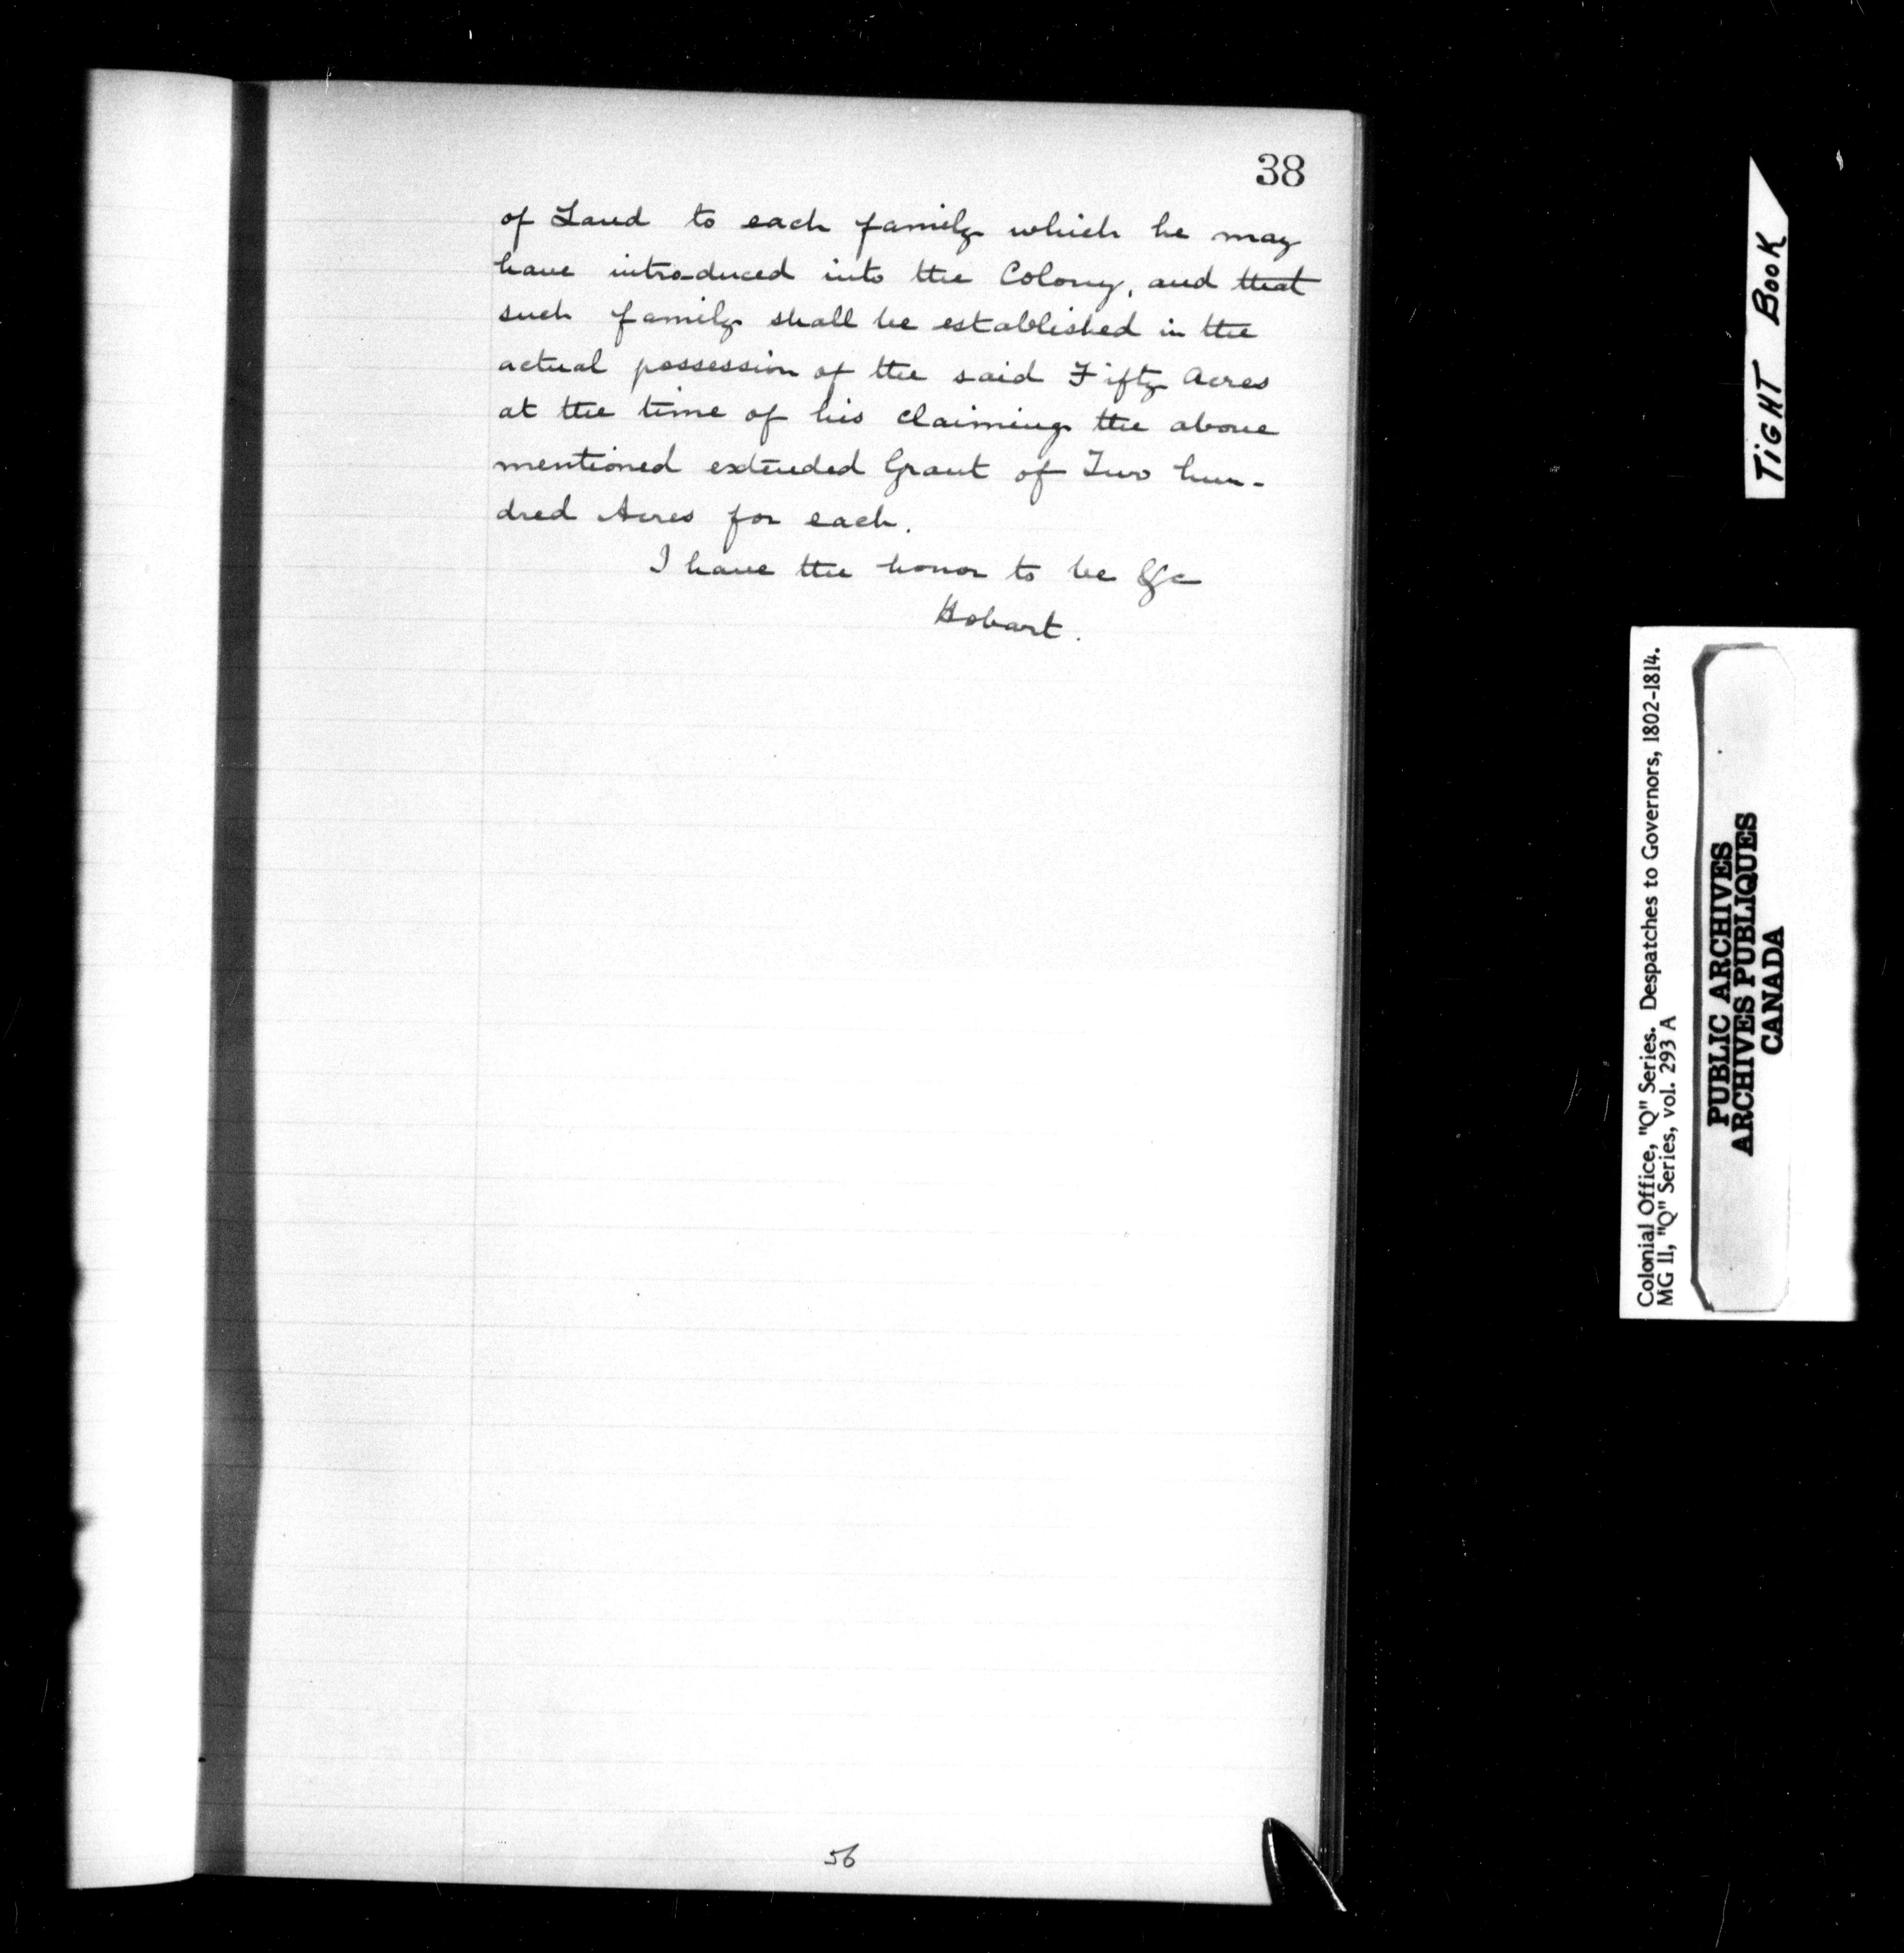 38
of Land to each family which he may
have introduced into the Colony, and that
such family shall be established in the
actual possession of the said Fifty Acres
at the time of his claiming the above
mentioned extended Grant of Two hun-
dred Acres for each.
I have the honor to be &c
Hobart.
56
TiGHT BOOK
Colonial Office, "Q" Series. Despatches to Governors, 1802-1814.
MG 11, "Q" Series, vol. 293 A
PUBLIC ARCHIVES
ARCHIVES PUBLIQUES
CANADA